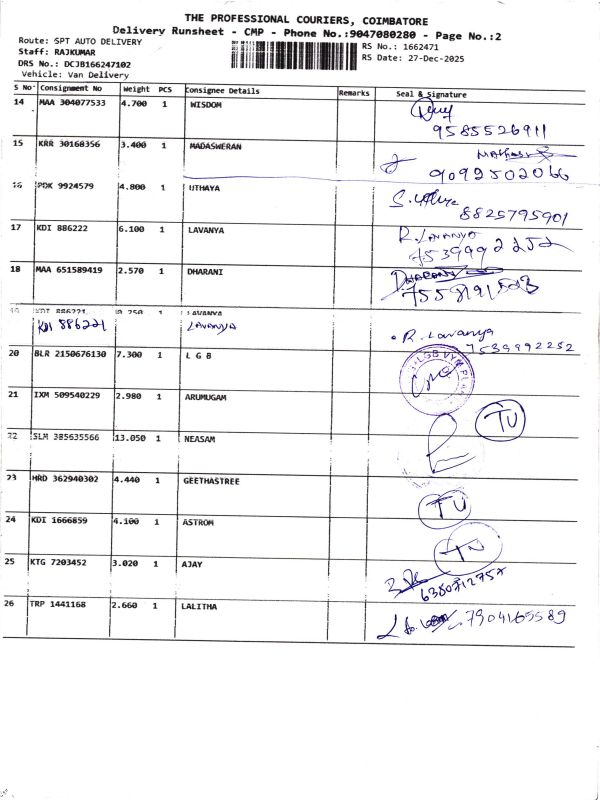 THE PROFESSIONAL COURIERS, COIMBATORE
Delivery Runsheet - CMP - Phone No.:9047080280 - Page No.:2
Route: SPT AUTO DELIVERY RS No.: 1662471
Staff: RAJKUMAR RS Date: 27-Dec-2025
DRS No.: DCJB166247102
Vehicle: Van Delivery
S No Consignment No Weight PCS Consignee Details Remarks Seal & Signature
14 MAA 304077533 4.700 1 WISDOM
9585526911
15 KRR 30168356 3.400 1 MADASWERAN
9092502066
16 PDK 9924579 4.800 1 UTHAYA
8825795901
17 KDI 886222 6.100 1 LAVANYA R. LAVANYA
7539992252
18 MAA 651589419 2.570 1 DHARANI DHARANI
19 KDI 886221 1 LAVANYA
KDI 886221 LAVANYA R. Lavanya
7539992252
20 BLR 2150676130 7.300 1 L G B
21 IXM 509540229 2.980 1 ARUMUGAM TU
22 SLM 385635566 13.050 1 NEASAM
23 HRD 362940302 4.440 1 GEETHASTREE TU
24 KDI 1666859 4.100 1 ASTROM TU
25 KTG 7203452 3.020 1 AJAY
6380712757
26 TRP 1441168 2.660 1 LALITHA 7904165589